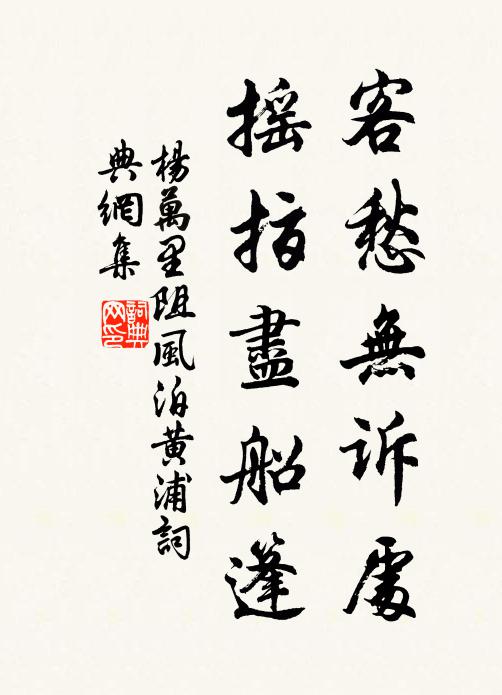 客愁無訴處
搖指盡船篷
楊萬里阻風泊黄浦詞
典網集
詞典
网印